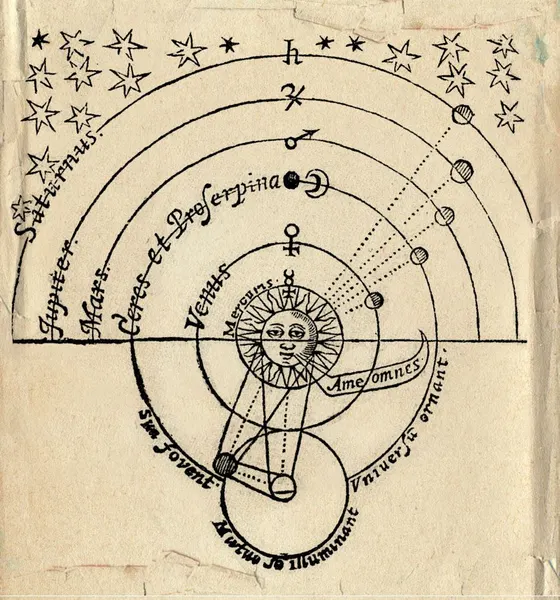 ♄
♃
♂
☽
♀
☿
Saturnus
Jupiter.
Mars.
Ceres et Proserpina
Venus
Mercurius.
A me omnes.
Sua fovent.
Universũ ornant.
Mutuo sõ illuminant